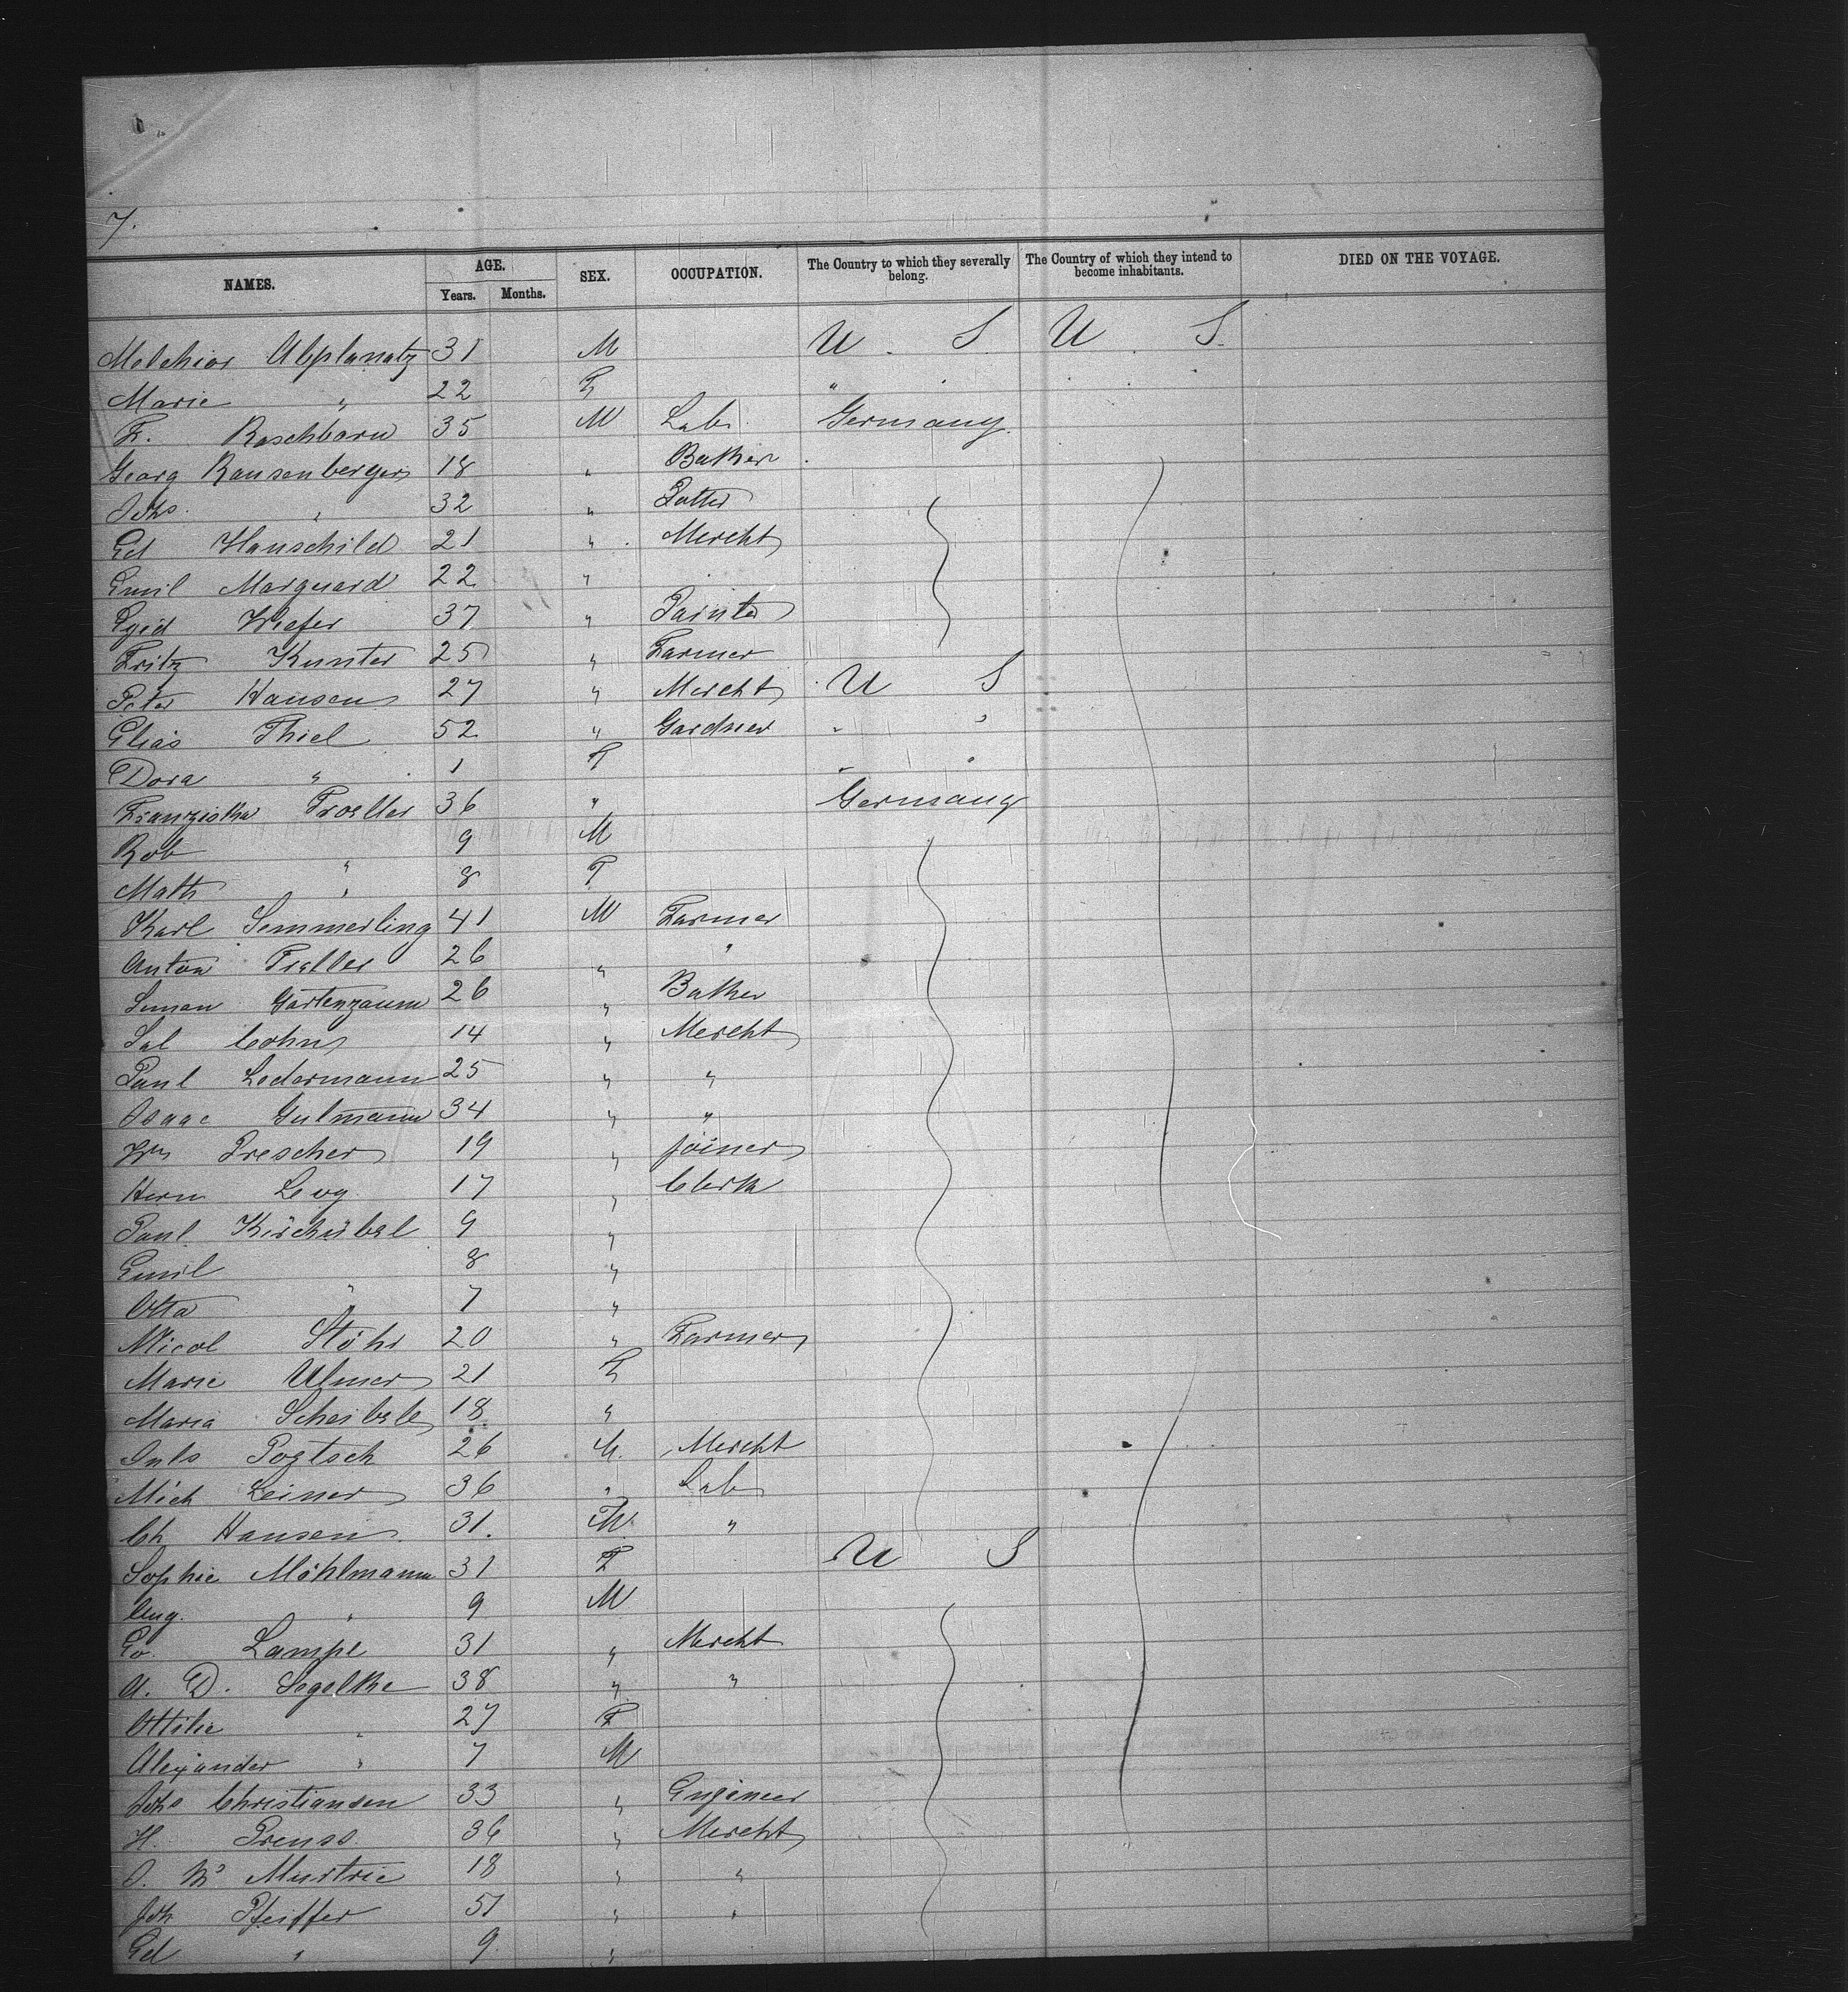 7.
NAMES. AGE. SEX. OCCUPATION. The Country to which they severally belong. The Country of which they intend to become inhabitants. DIED ON THE VOYAGE.
Years. Months.
Melchior Abplanatz 31 M U. S. U. S.
Marie " 22 F "
F. Raschborn 35 M Lab. Germany.
Georg Rausenberger 18 " Baker
Johs. " 32 " Potter
Ed Hauschild 21 " Mercht
Emil Marquard 22 "
Egid Wiefer 37 " Painter
Fritz Kunter 25 " Farmer
Peter Hansen 27 " Mercht U S
Elias Thiel 52 " Gardner " "
Dora " 1 F " "
Franziska Troeller 36 " Germany
Rob " 9 M
Math " 8 F
Karl Semmerling 41 M Farmer
Anton 26 " "
Simon Gartenzaun 26 " Baker
Sal Cohn 14 " Mercht
Paul Ledermann 25 " "
Isaac Gulmann 34 " "
Wm Prescher 19 " joiner
Herm Levy 17 " Clerk
Paul Kirchübel 9 "
Emil 8 "
Otto " 7 "
Nicol Stöhr 20 " Farmer
Marie Ulmer 21 F
Maria Scheibele 18 "
Juls Pogtsch 26 M. Mercht
Mich Leiner 36 " Lab
Ch Hansen 31. M. "
Sophie Möhlmann 31 F U S
Aug. " 9 M
Go. Lampe 31 " Mercht
A. D. Segelke 38 " "
Ottilie " 27 F
Alexander " 7 M
Johs Christiansen 33 " Engineer
H. Preuss 36 " Mercht
J. Mc Murtrie 18 " "
Joh Pfeiffer 51 " "
Ed " 9. "